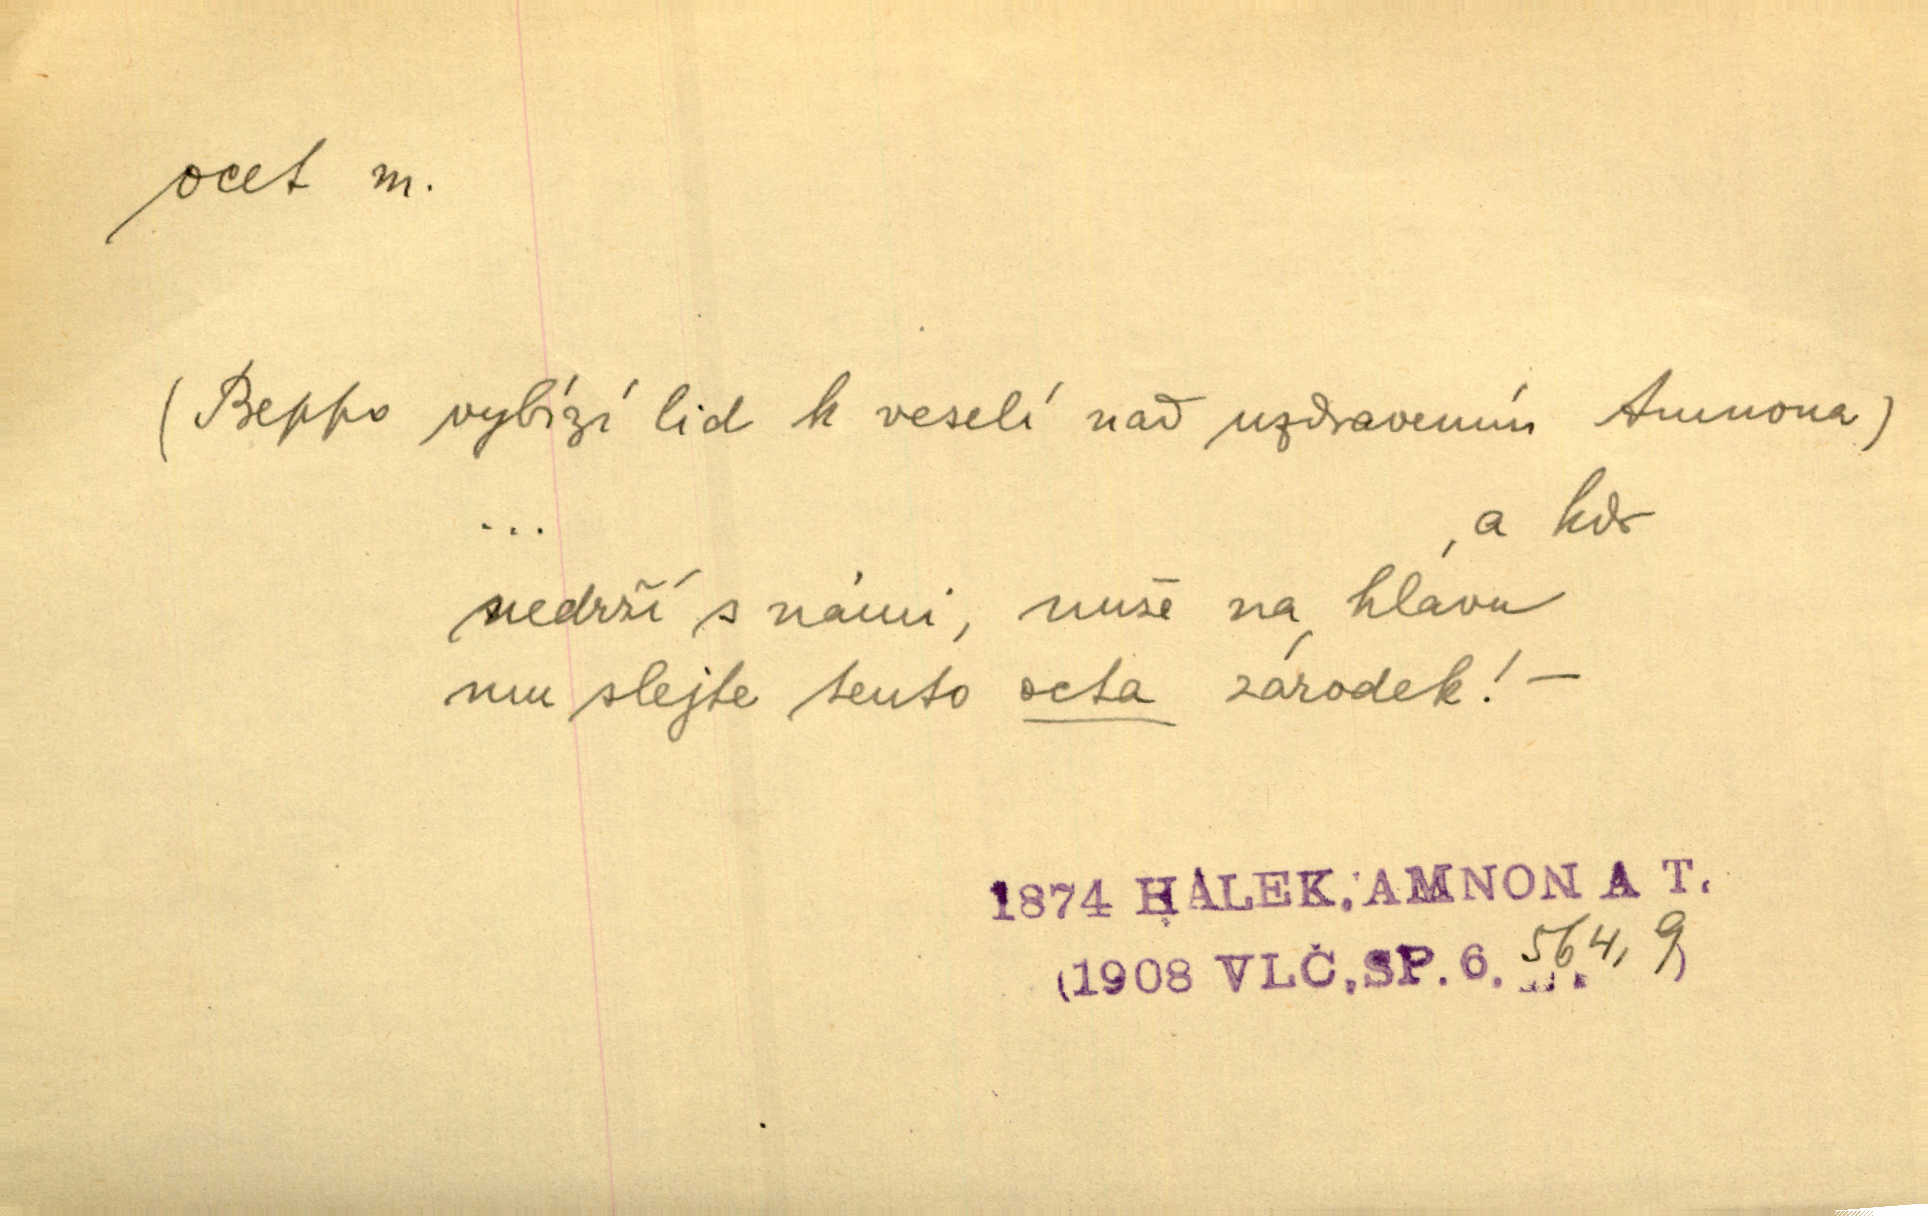 ocet m.
(Beppo vybízí lid k veselí nad uzdravením Amnona)
... , a kdo
nedrží s námi, nuže na hlavu
mu slejte tento octa zárodek! —
1874 HÁLEK, AMNON A T.
(1908 VLČ, SP. 6. 564, 9)